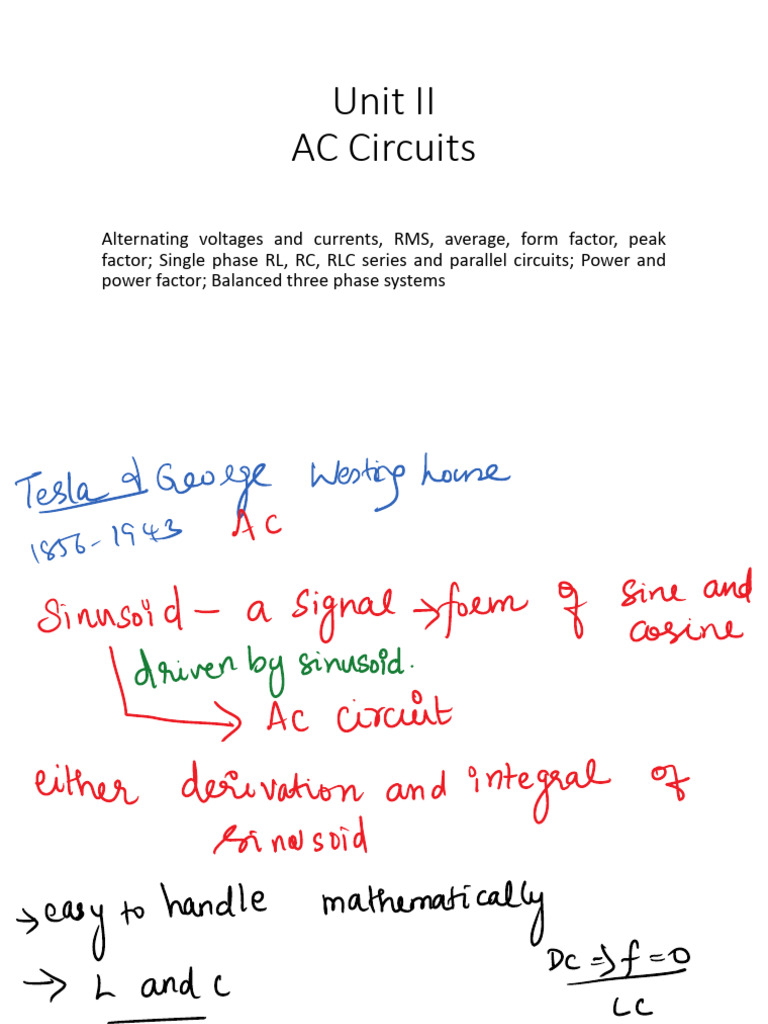 Unit II
AC Circuits
Alternating voltages and currents, RMS, average, form factor, peak
factor; Single phase RL, RC, RLC series and parallel circuits; Power and
power factor; Balanced three phase systems
Tesla & George Westing house
1856-1943 AC
Sinusoid – a signal → form of sine and
cosine
driven by sinusoid.
→ AC circuit
either derivation and integral of
sinusoid
→ easy to handle mathematically
→ L and C
DC ⇒ f = 0
LC